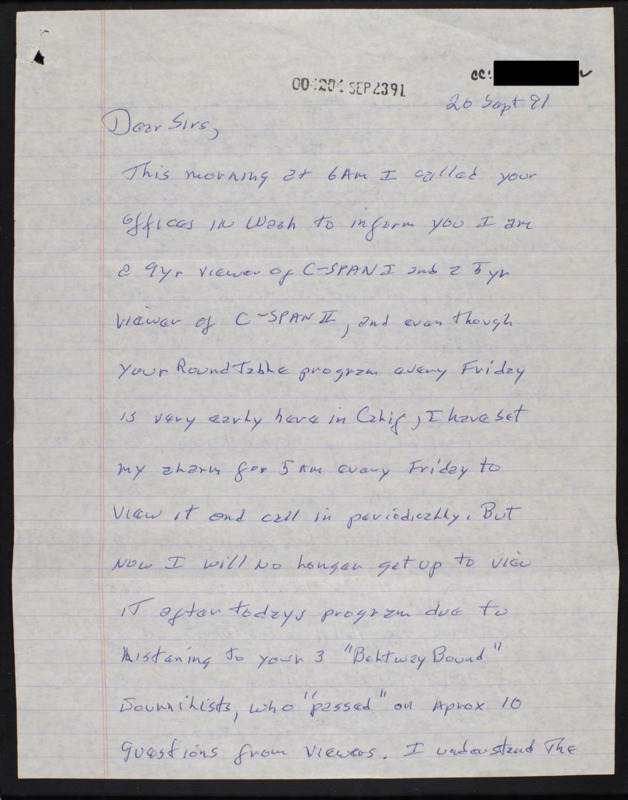 cc:
004204 SEP2391
20 Sept 91
Dear Sirs,
This morning at 6AM I called your
offices in Wash to inform you I am
a 9yr viewer of C-SPAN I and a 5 yr
viewer of C-SPAN II, and even though
your RoundTable program every Friday
is very early here in Calif, I have set
my alarm for 5 AM every Friday to
view it and call in periodically. But
now I will no longer get up to view
it after todays program due to
listening to your 3 "Beltway Bound"
Journilists, who "passed" on Aprox 10
questions from viewers. I understand The